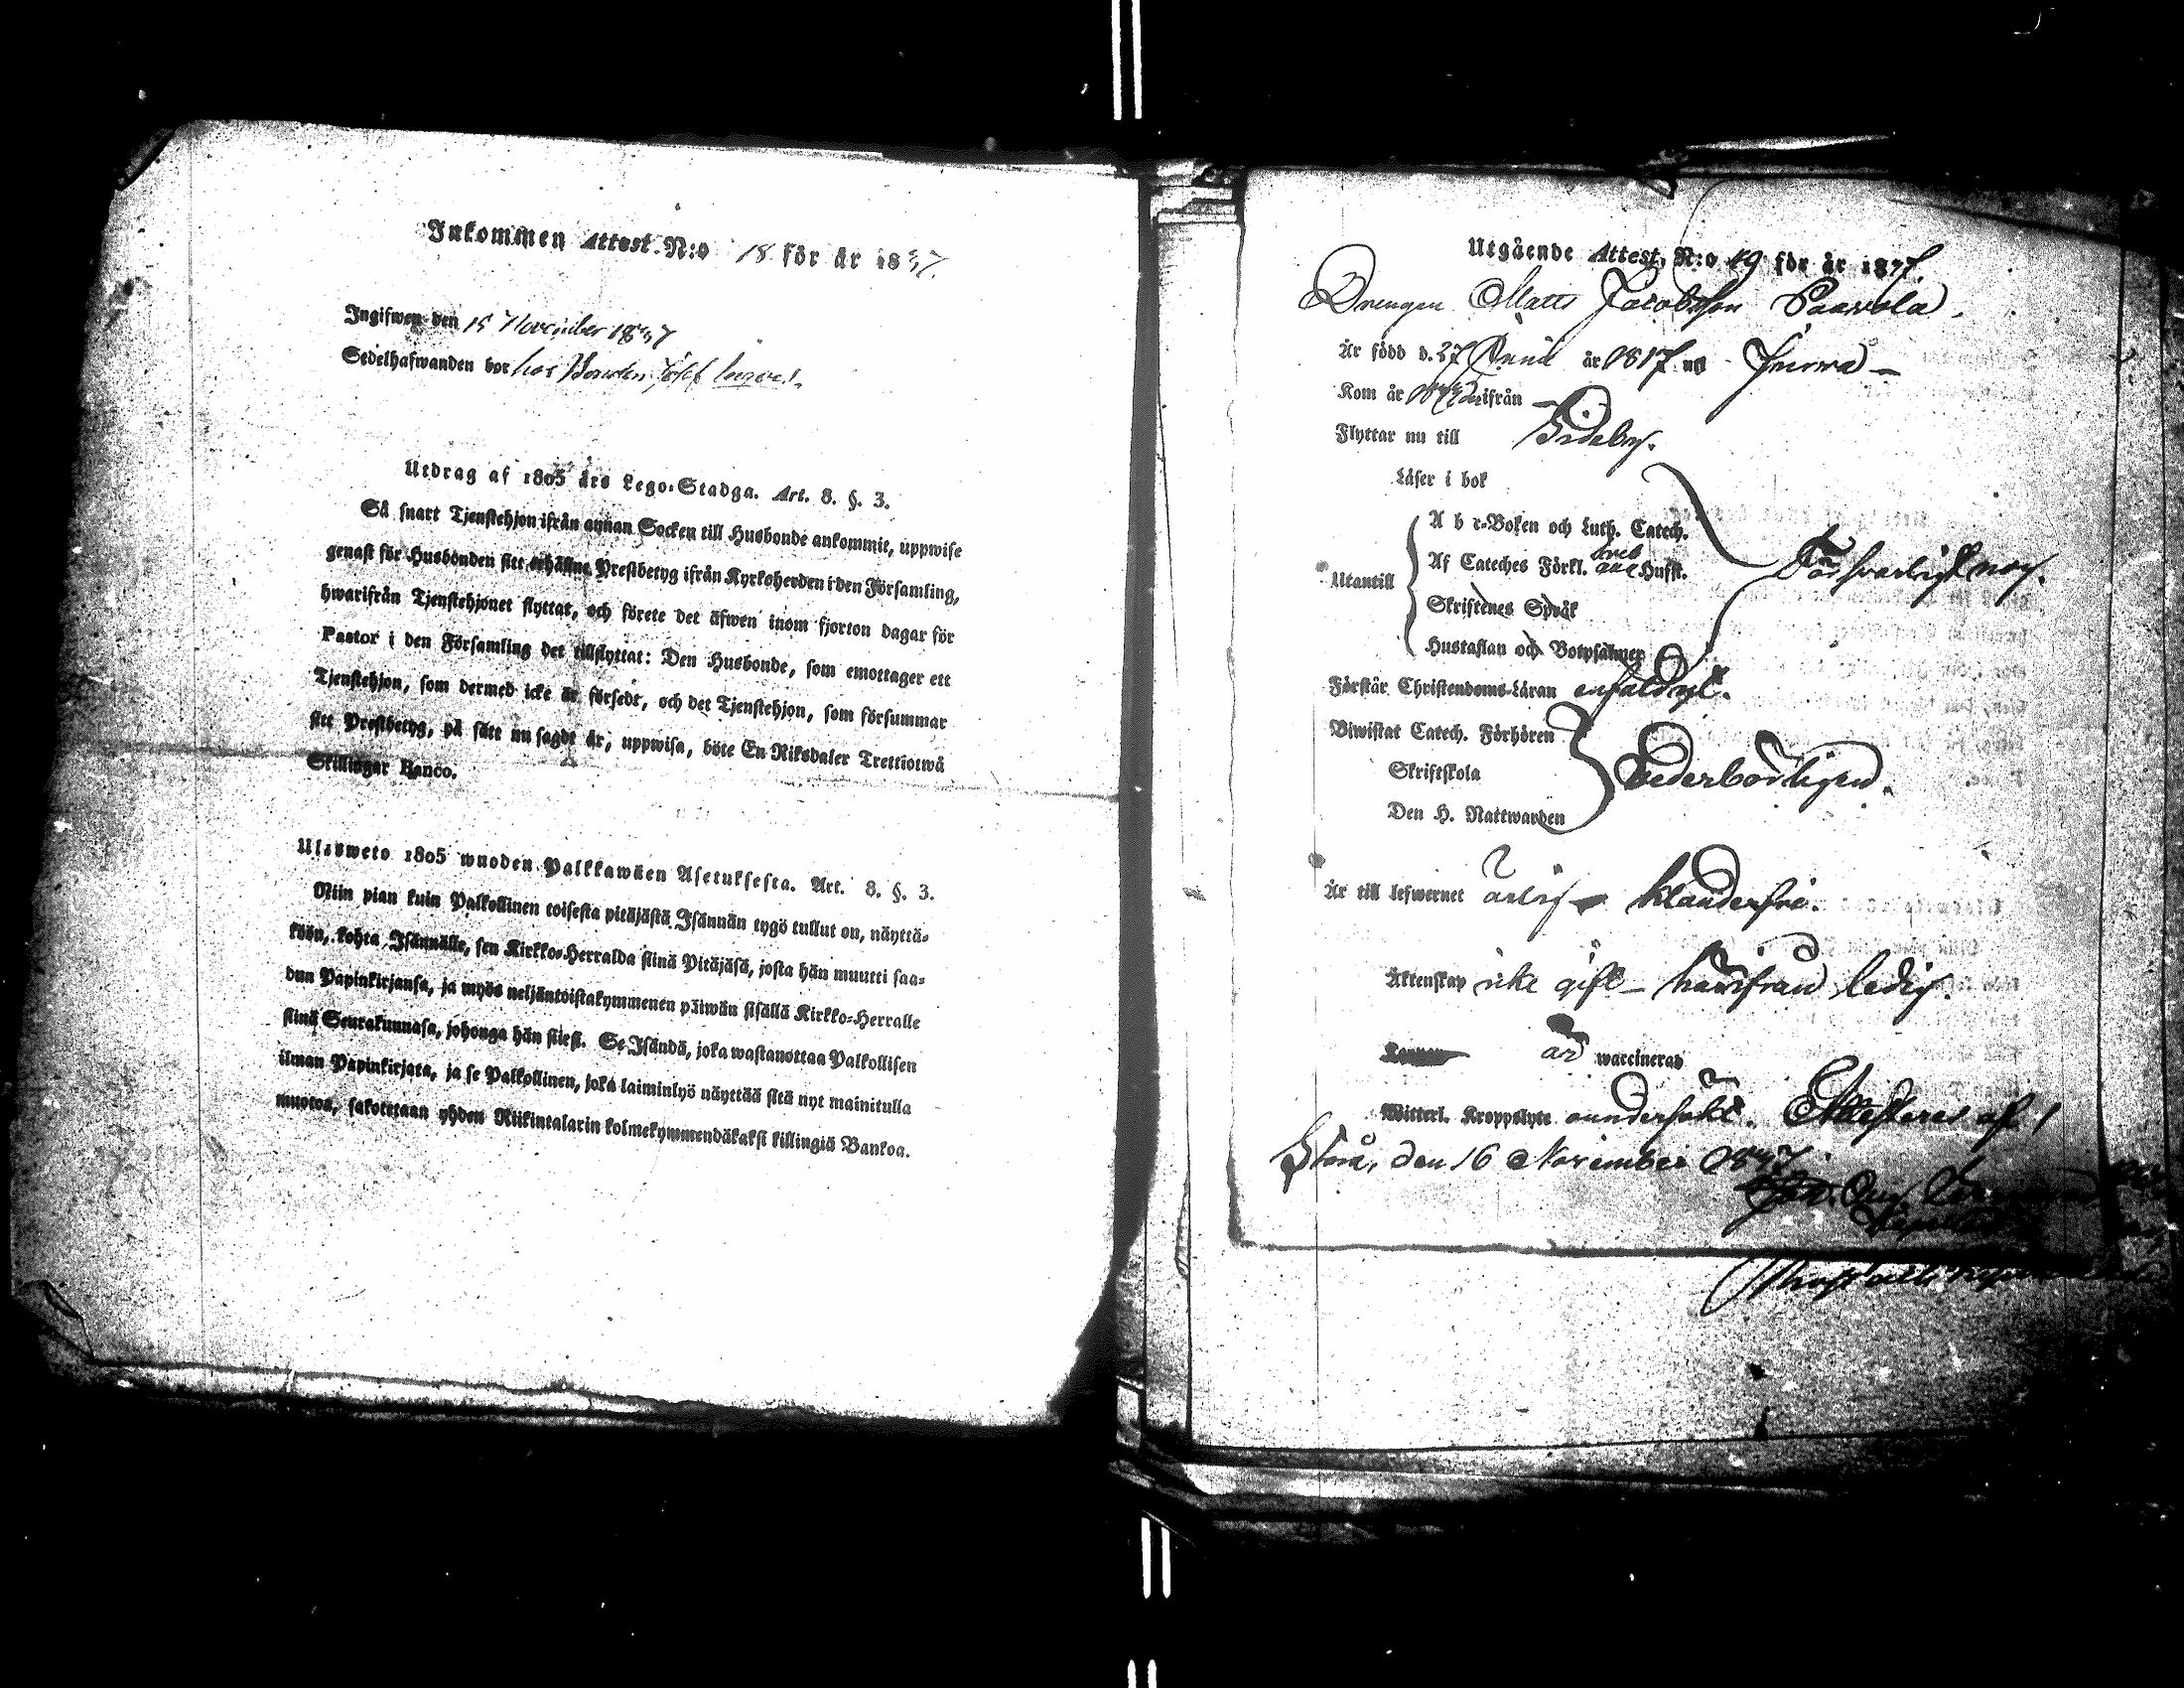 Inkommen Attest N:o 18 för år 1837.
Ingifwen den 15 November 1837
Sedelhafwanden bor hos Bonden Josef
Utdrag af 1805 års Lego-Stadga. Art. 8. §. 3.
Så snart Tjenstehjon ifrån annan Socken till Husbonde ankommit, uppwise
genast för Husbonden sitt erhållne Prestbetyg ifrån Kyrkoherden i den Församling,
hwarifrån Tjenstehjonet flyttat, och förete det äfwen inom fjorton dagar för
Pastor i den Församling det tillflyttat: Den Husbonde, som emottager ett
Tjenstehjon, som dermed icke är försedt, och det Tjenstehjon, som försummar
sitt Prestbetyg, på sätt nu sagdt är, uppwisa, böte En Riksdaler Trettiotwå
Skillingar Banco.
Ulosweto 1805 wuoden Palkkawäen Asetuksesta. Art. 8. §. 3.
Niin pian kuin Palkollinen toisesta pitäjästä Isännän tygö tullut on, näyttä-
köön, kohta Isännälle, sen Kirkko-Herralda siinä Pitäjäsä, josta hän muutti saa-
dun Papinkirjansa, ja myös neljäntoistakymmenen päiwän sisällä Kirkko-Herralle
siinä Seurakunnasa, johonga hän siiest. Se Isändä, joka wastanottaa Palkollisen
ilman Papinkirjata, ja se Palkollinen, joka laiminlyö näyttää sitä nyt mainitulla
muotoa, sakotetaan yhden Riikintalarin kolmekymmendäkaksi killingiä Bankoa.
Utgående Attest, N:o 19 för år 1837.
Drengen Matts Jacobsson Paavola.
Är född d. 27 Junii år 1817 uti Jurva
Kom år ifrån
Flyttar nu till Sideby.
Läser i bok
Utantill
A b c-Boken och Luth. Catech.
Af Cateches Förkl. Husst.
Skriftenes Språk
Hustaflan och Botpsalmer
Försvarligt nog.
Förstår Christendoms-Läran enfaldigt.
Biwistat Catech. Förhören
Skriftskola
Den H. Nattwarden
Vederbörligen.
Är till lefwernet ärlig klanderfri.
Äktenskap icke gift – härifrån ledig.
är waccinerad
Mitterl. Kroppslyte oundersökt. Attesteras af
Storå, den 16 November 1837.